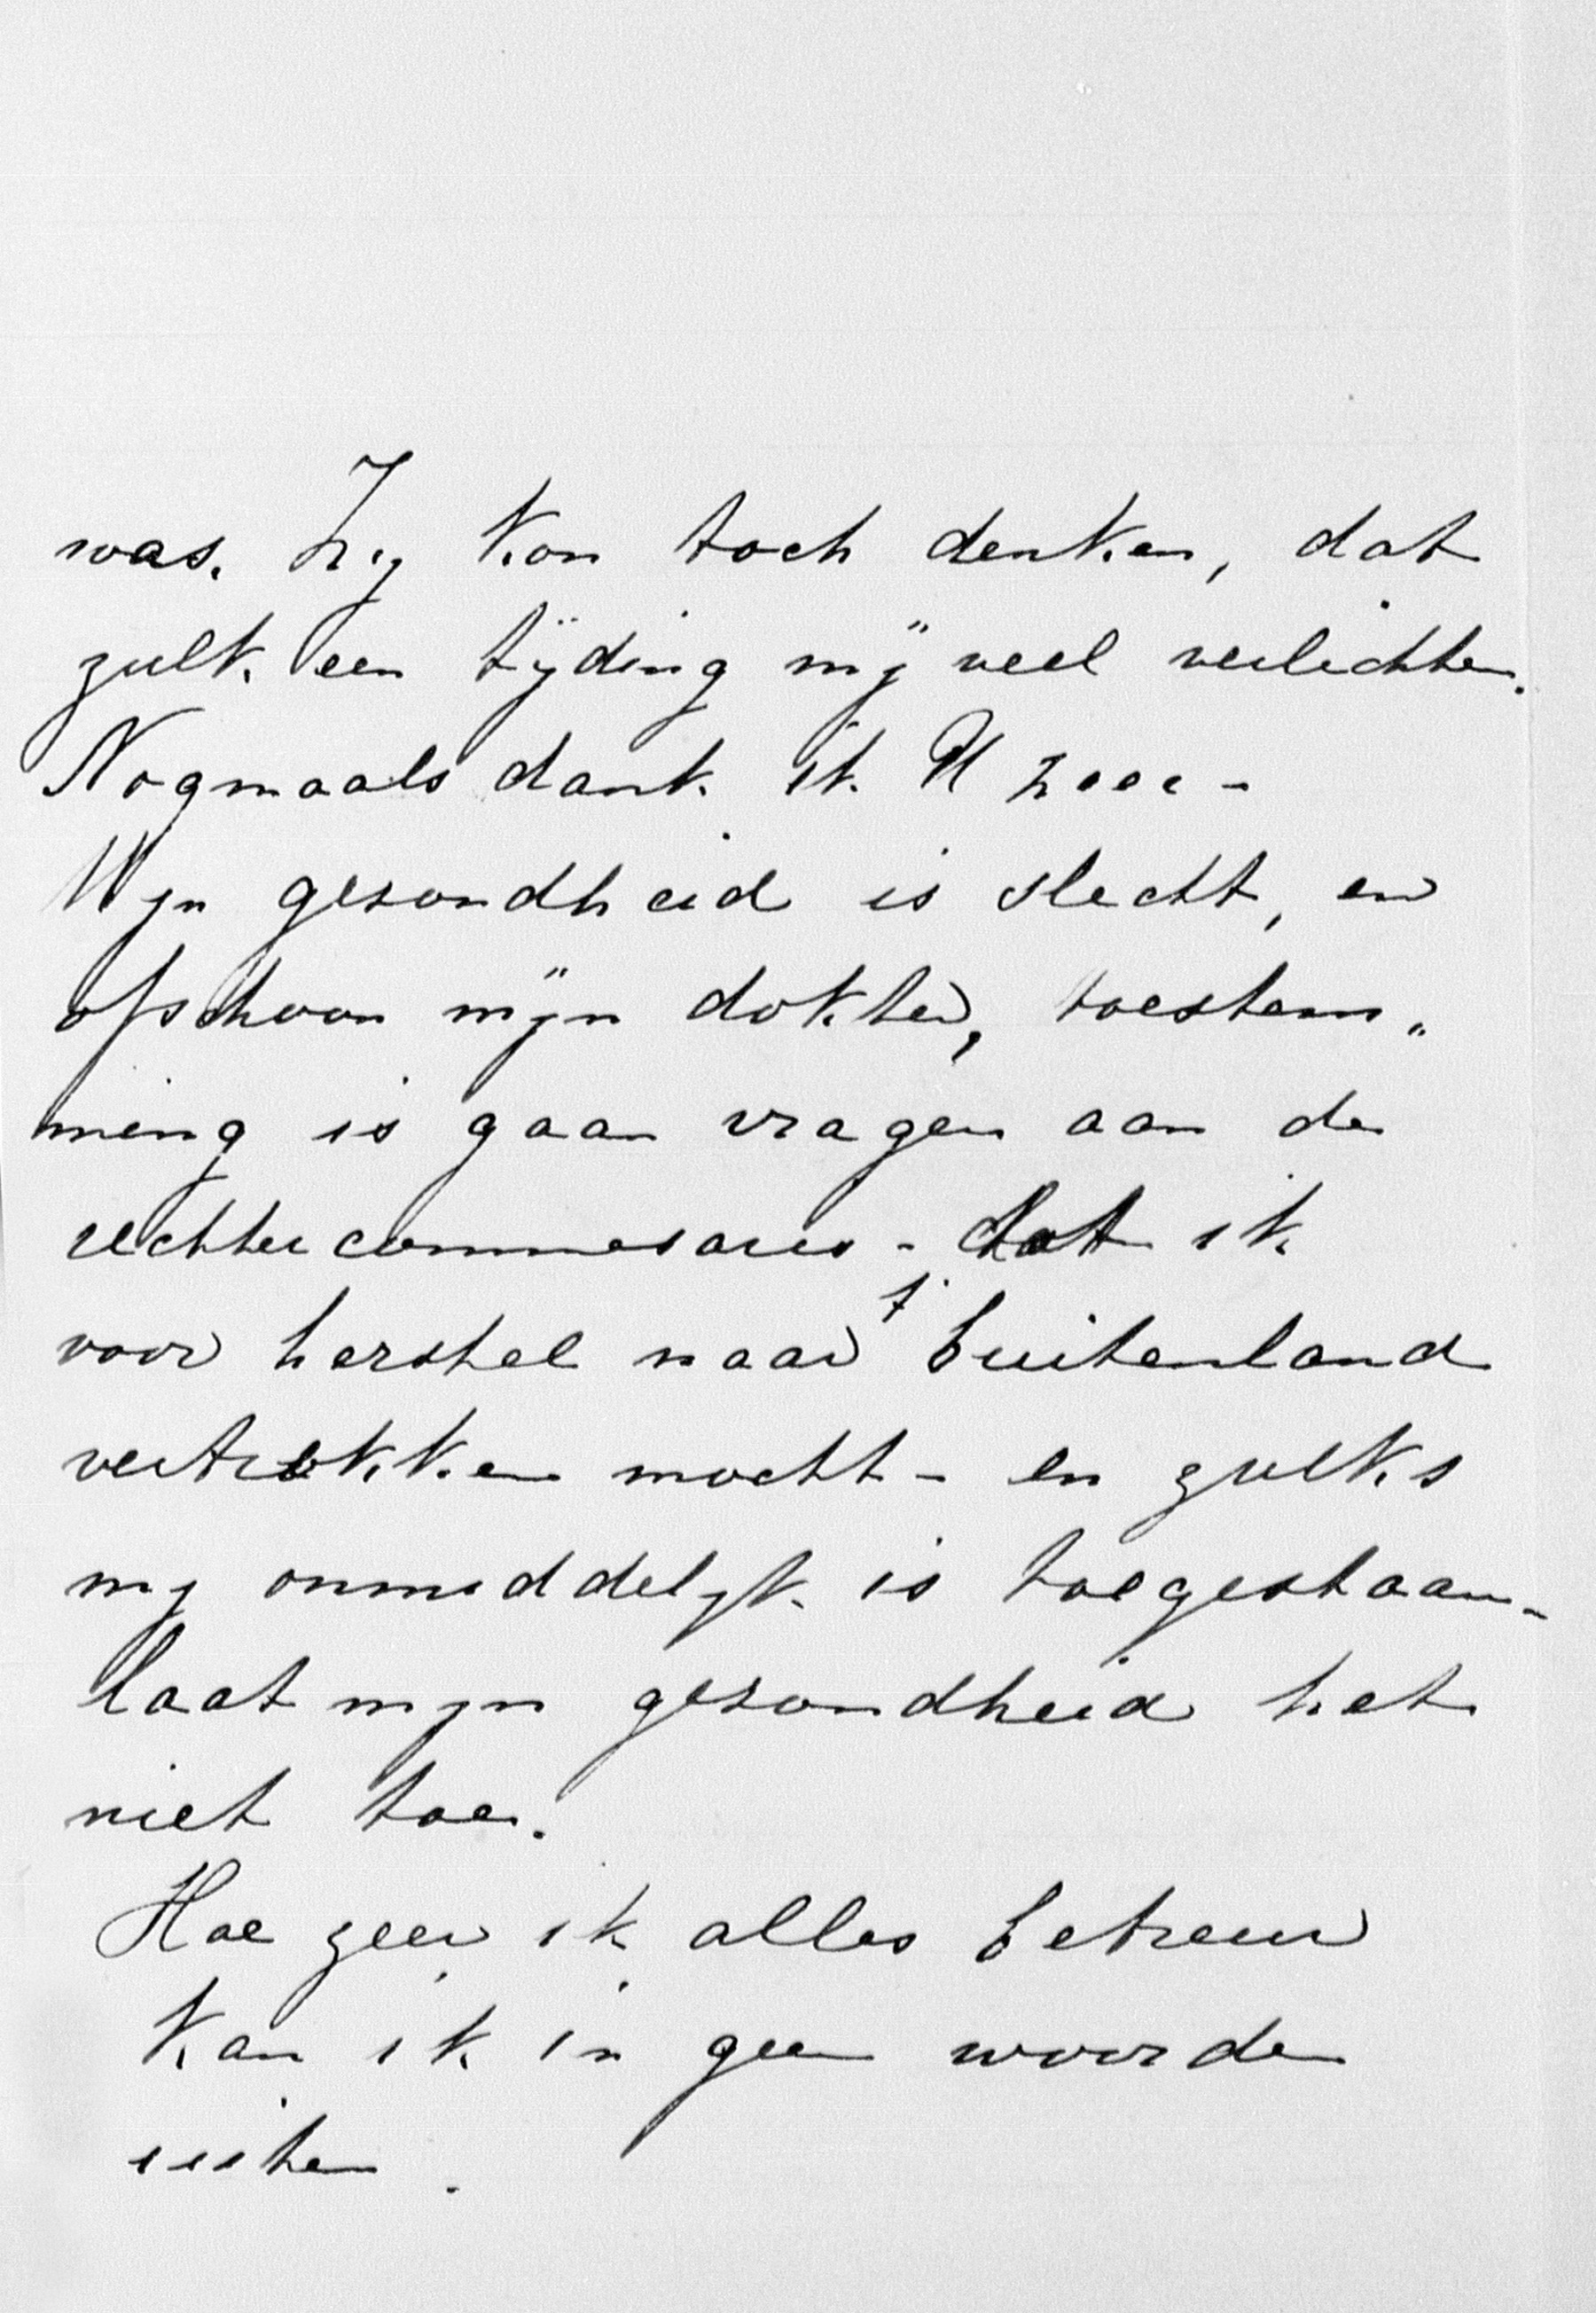 was. Hij kon toch denken, dat
zulk een tijding mij veel verlichten.
Nogmaals dank ik U zeer -
Mijn gesondheid is slecht, en
ofschoon mijn dokter, toestem„
ming is gaan vragen aan de
rechtercommesaris - dat ik
voor herstel naar 't buitenland
vertrekken mocht - en zulks
mij onmiddelijk is toegestaan -
laat mijn gesondheid het
niet toe.
Hoe zeer ik alles betreur
kan ik in geen woorden
uiten.